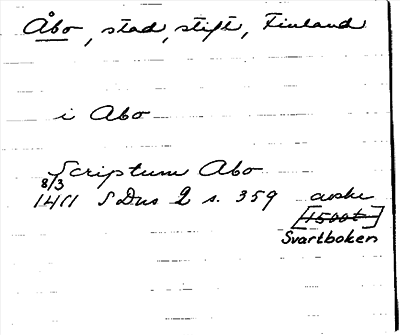 Åbo, stad, stift, Finland
i Abo
Scriptum Abo
8/3
1411 SDns 2 s. 359 avskr
[1500t]
Svartboken